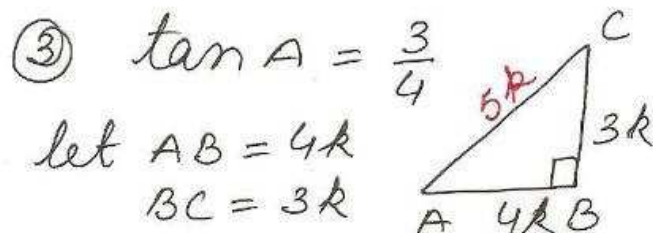 ③ tan A = 3/4
let AB = 4k
BC = 3k
C
5k
3k
A 4k B